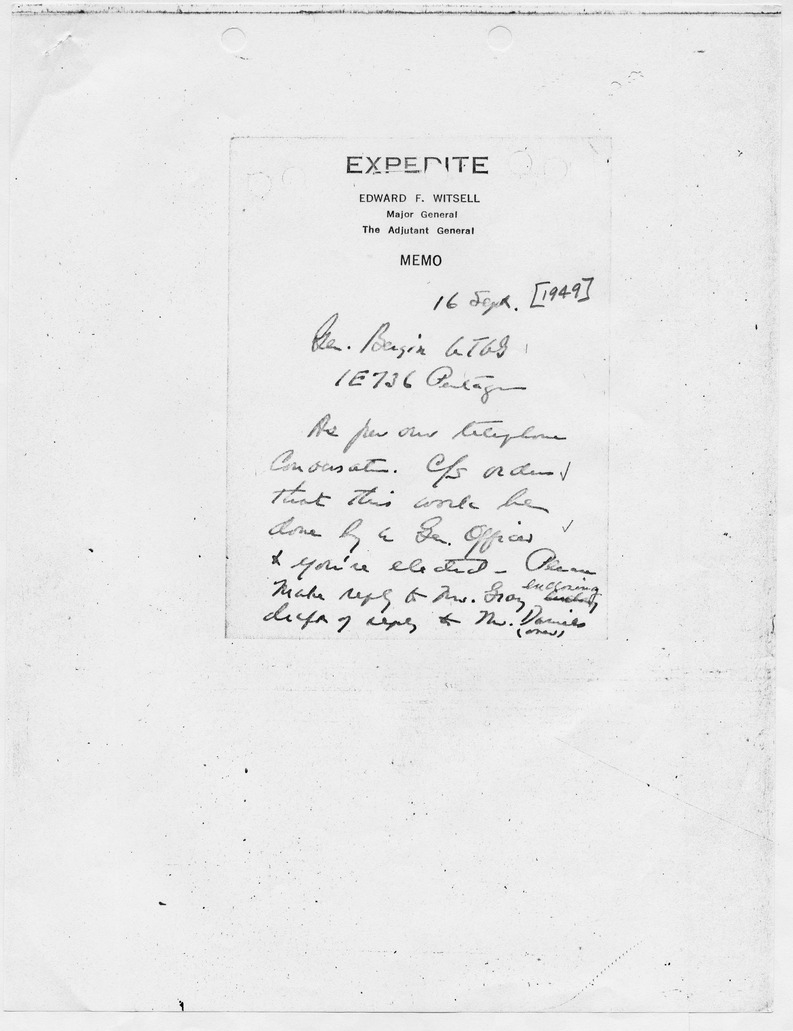 EXPEDITE
EDWARD F. WITSELL
Major General
The Adjutant General
MEMO
16 Sept. [1949]
Gen. Bergin
1E736 Pentagon
As per our telephone
Conversatn. C/S orders
that this work be
done by a Gen. Officer
& you're elected - Please
make reply to Mr. Gray enclosing
draft of reply to Mr. Daniels
(over)